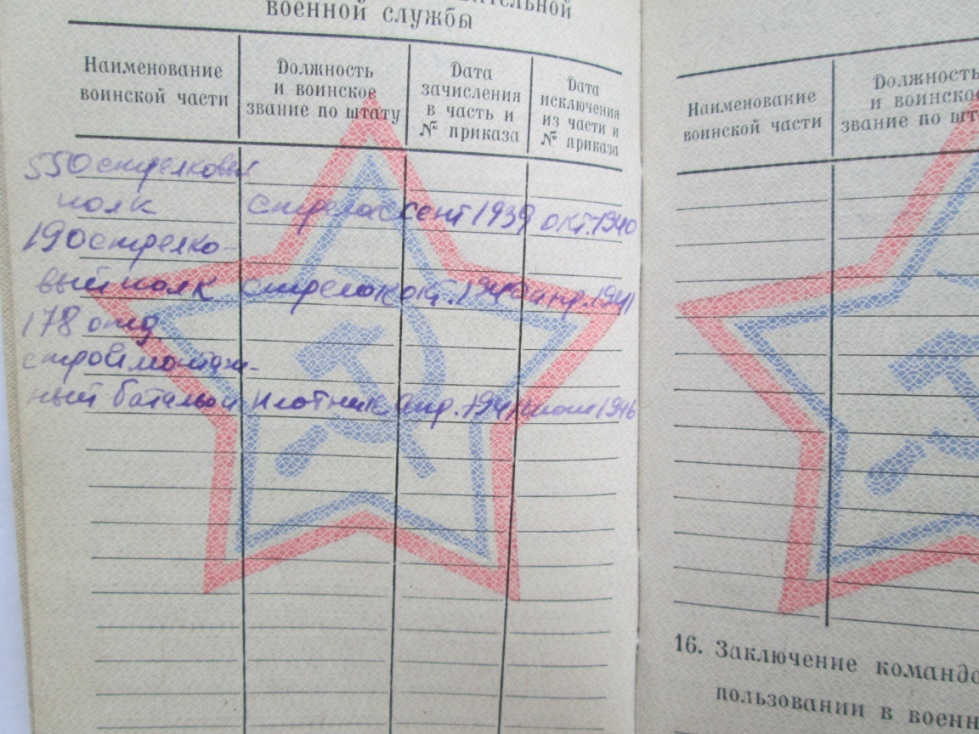 ательной
военной службы
Наименование воинской части
Должность и воинское звание по штату
Дата зачисления в часть и № приказа
Дата исключения из части и № приказа
550 стрелковый
полк стрелок сент 1939 окт. 1940
190 стрелко-
вый полк стрелок окт. 1940 апр. 1941
178 отд
строймонтаж-
ный батальон плотник апр. 1941 1946
Наименование воинской части
Должность
и воинско
звание по шт
16. Заключение командо
пользовании в военн